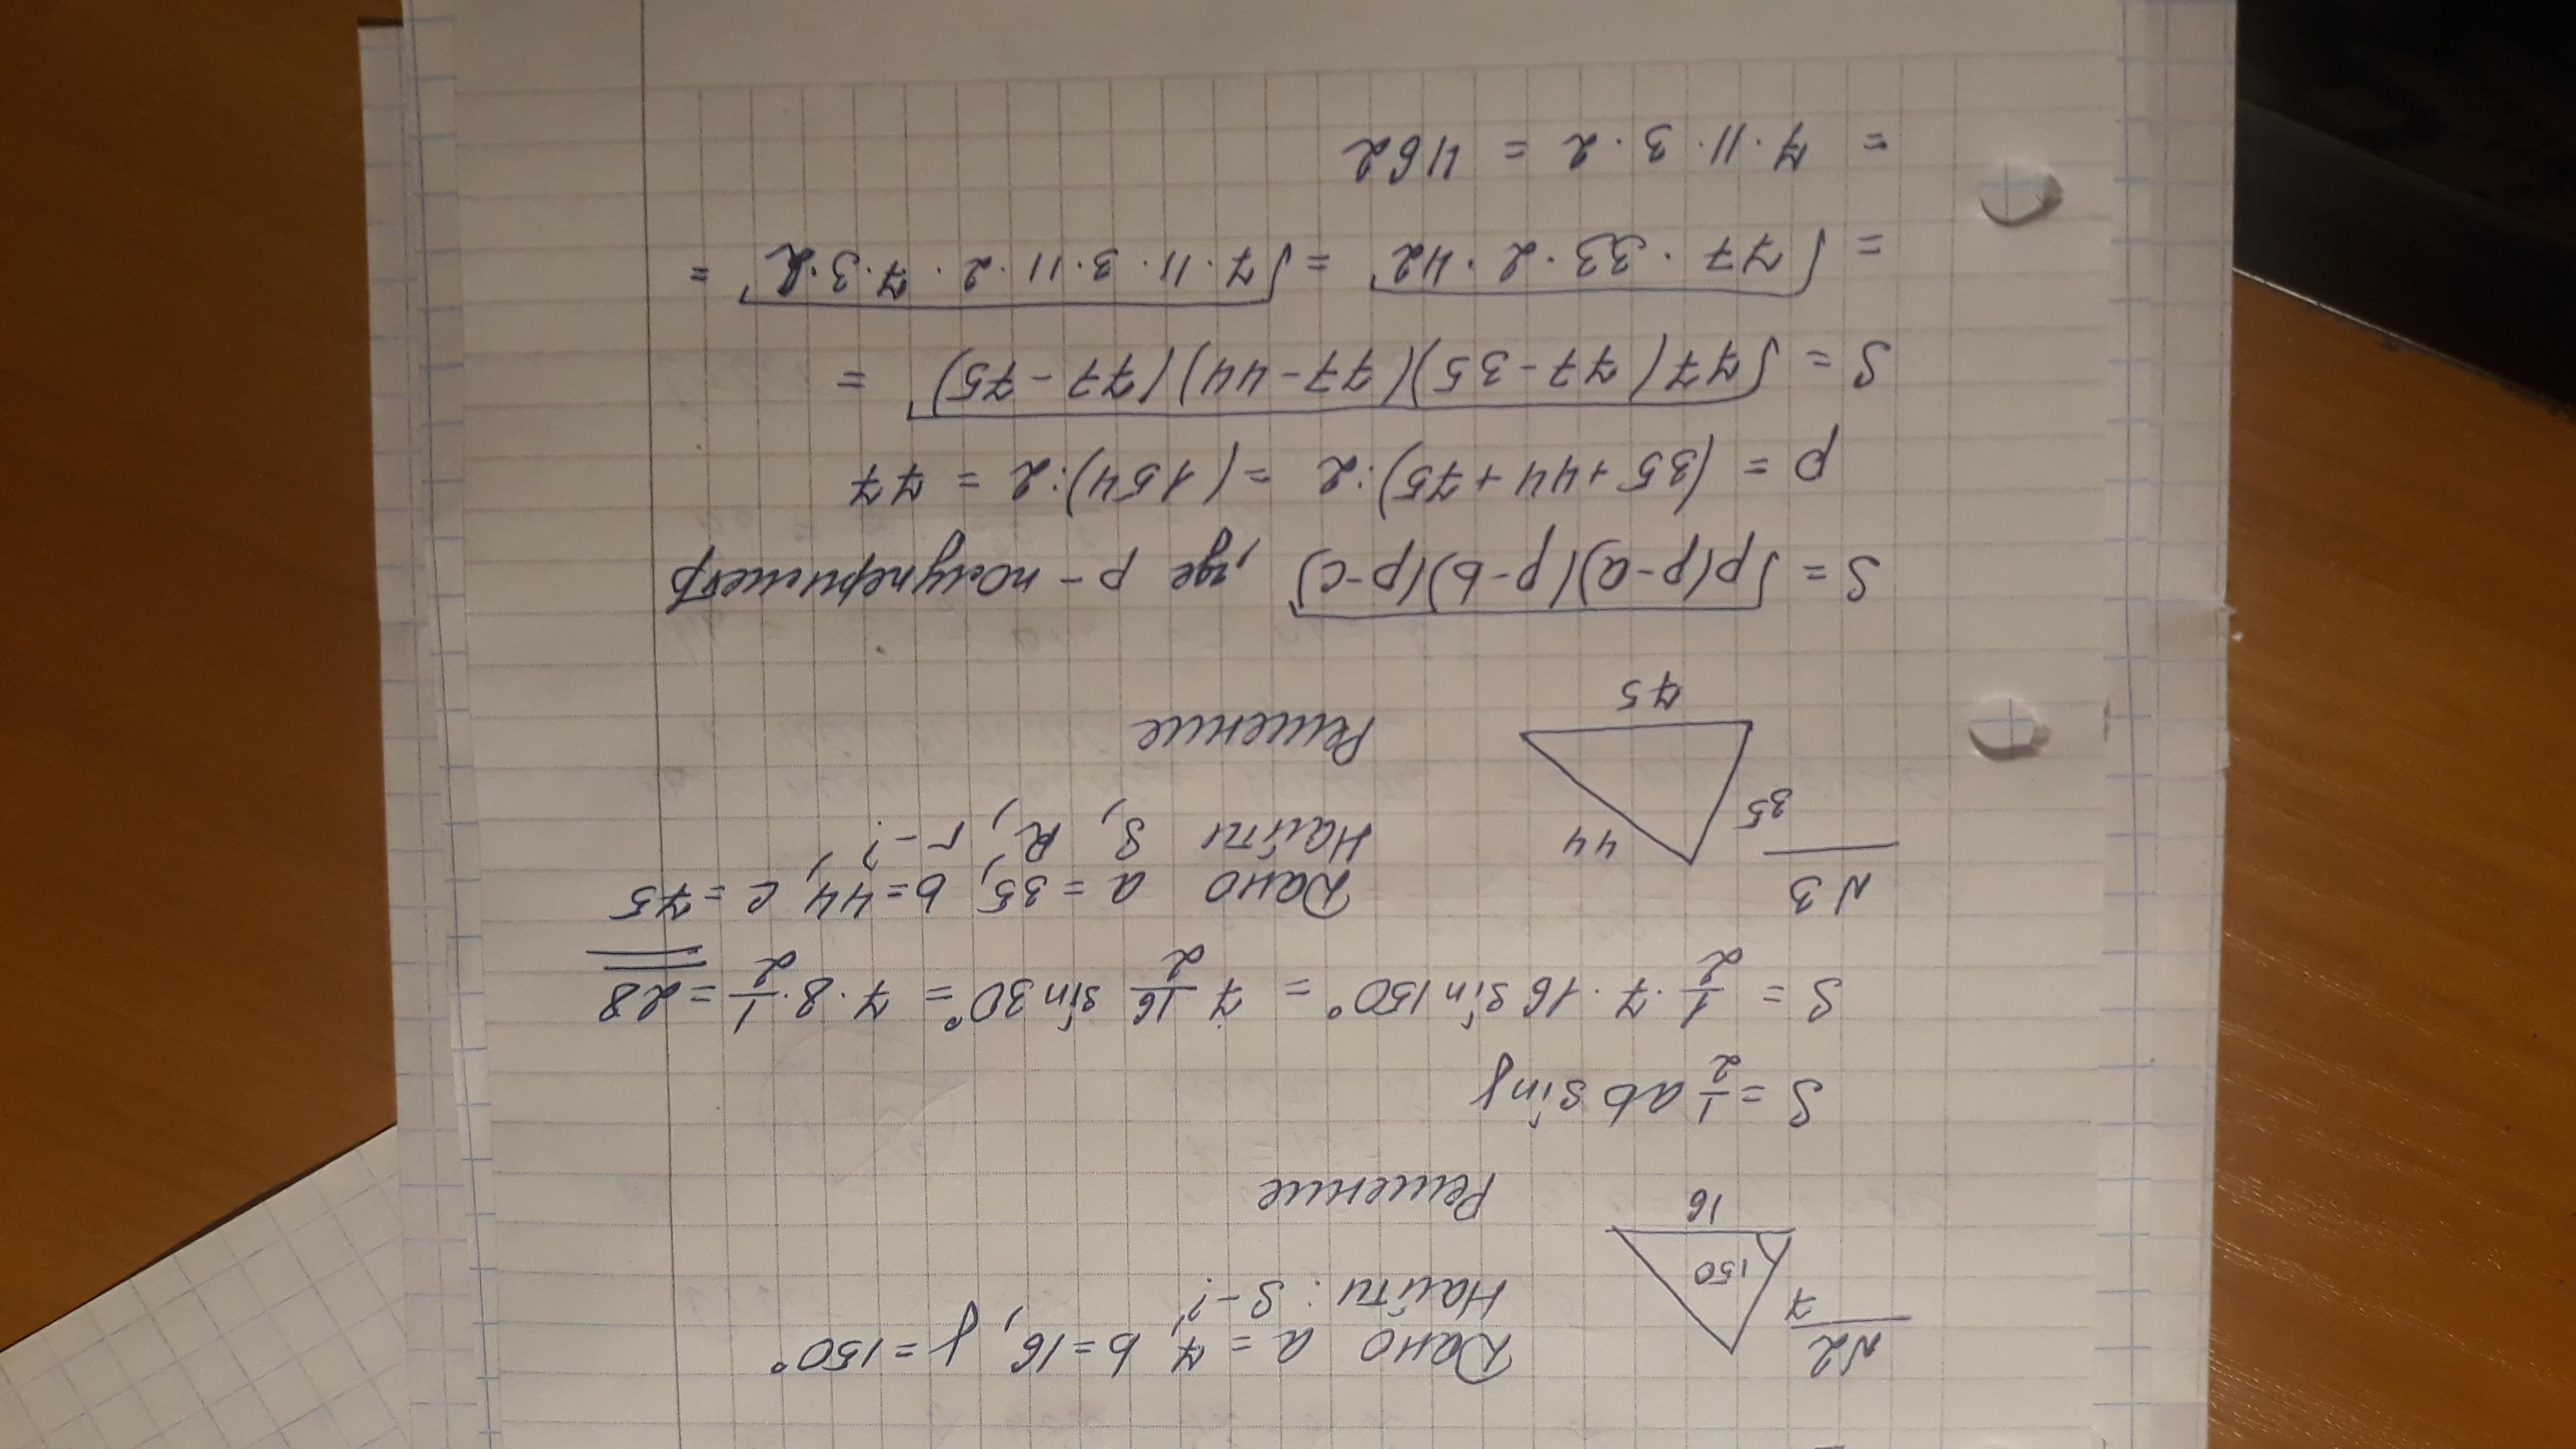 №2
Дано a = 7, b = 16, γ = 150°
Найти: S - ?
7
150
16
Решение
S = 1/2 ab sin γ
S = 1/2 · 7 · 16 sin 150° = 7 16/2 sin 30° = 7 · 8 · 1/2 = 28
№3
Дано a = 35, b = 44, c = 75
Найти S, R, r - ?
35
44
75
Решение
S = √p(p-a)(p-b)(p-c), где p - полупериметр
p = (35 + 44 + 75) : 2 = (154) : 2 = 77
S = √77(77-35)(77-44)(77-75) =
= √77 · 33 · 2 · 42 = √7 · 11 · 3 · 11 · 2 · 7 · 3 · 2 =
= 7 · 11 · 3 · 2 = 462